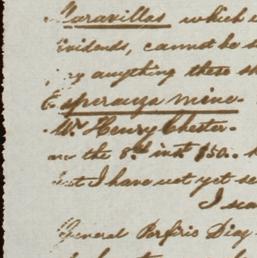 Maravillas which
ividends, cannot be s
any anything these sh
Esperanza mine.
Mr. Henry Chester.
the 8th inst $50.
that I have not yet se
I
General Porfirio Diaz